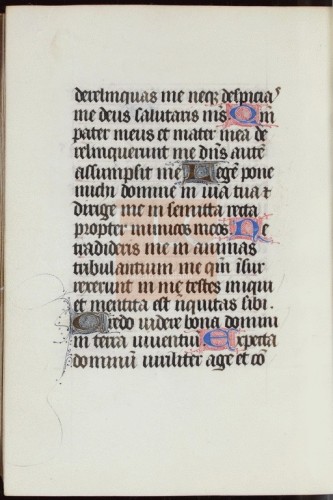 derelinquas me neqꝫ despicias
me deus salutaris m̃s Qm̃
pater meus et mater mea de
relinquerunt me dñs autē
assumpsit me Legē pone
michi domine in via tua ⁊
dirige me in semitta recta
propter inimicos meos Ne
tradideris me in animas
tribulantium me qm̃ īsur
rexerunt in me testes iniqui
et mentita est iiquitas sibi.
Credo videre bona domini
in terra viventiū Expecta
dominū viriliter age et cō